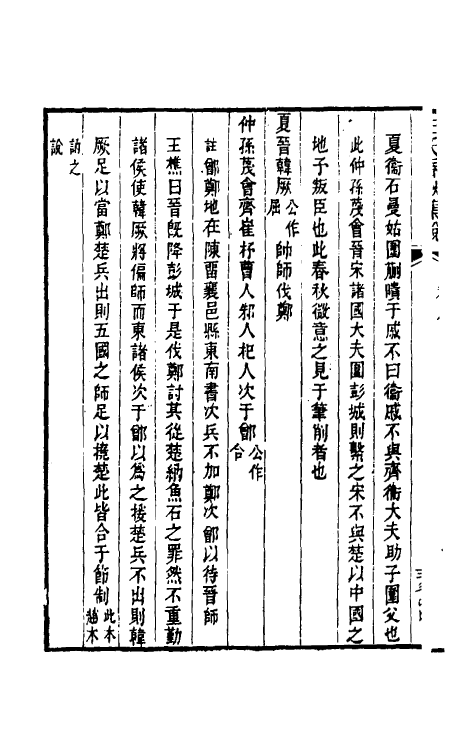 夏衞石曼姑圍蒯聵于戚不曰衞戚不與齊衞大夫助子圍父也
此仲孫蔑會晉宋諸國大夫圍彭城則繫之宋不與楚以中國之
地子叛臣也此春秋微意之見于筆削者也
夏晉韓厥公作屈帥師伐鄭
仲孫蔑會齊崔杼曹人邾人杞人次于鄫公作合
註鄫鄭地在陳畱襄邑縣東南書次兵不加鄭次鄫以待晉師
王樵曰晉旣降彭城于是伐鄭討其從楚納魚石之罪然不重勤
諸侯使韓厥將偏師而東諸侯次于鄫以爲之援楚兵不出則韓
厥足以當鄭楚兵出則五國之師足以撓楚此皆合于節制此本趙木
訥之說